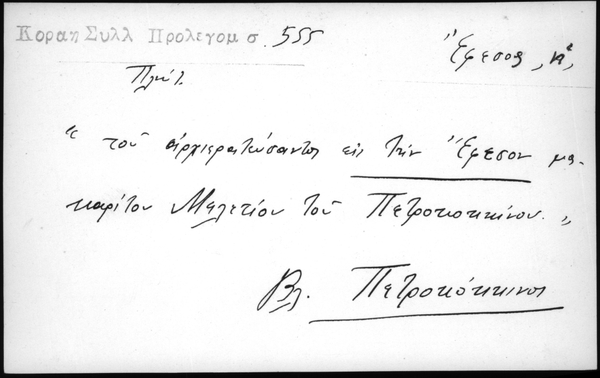 Κοραη Συλλ Προλεγομ σ. 555
Ἔφεσος, ἡ,
Πλούτ.
“ τοῦ ἀρχιερατεύσαντος εἰς τὴν Ἔφεσον μα-
καρίτου Μελετίου τοῦ Πετροκοκκίνου. „
Βλ. Πετροκόκκινος